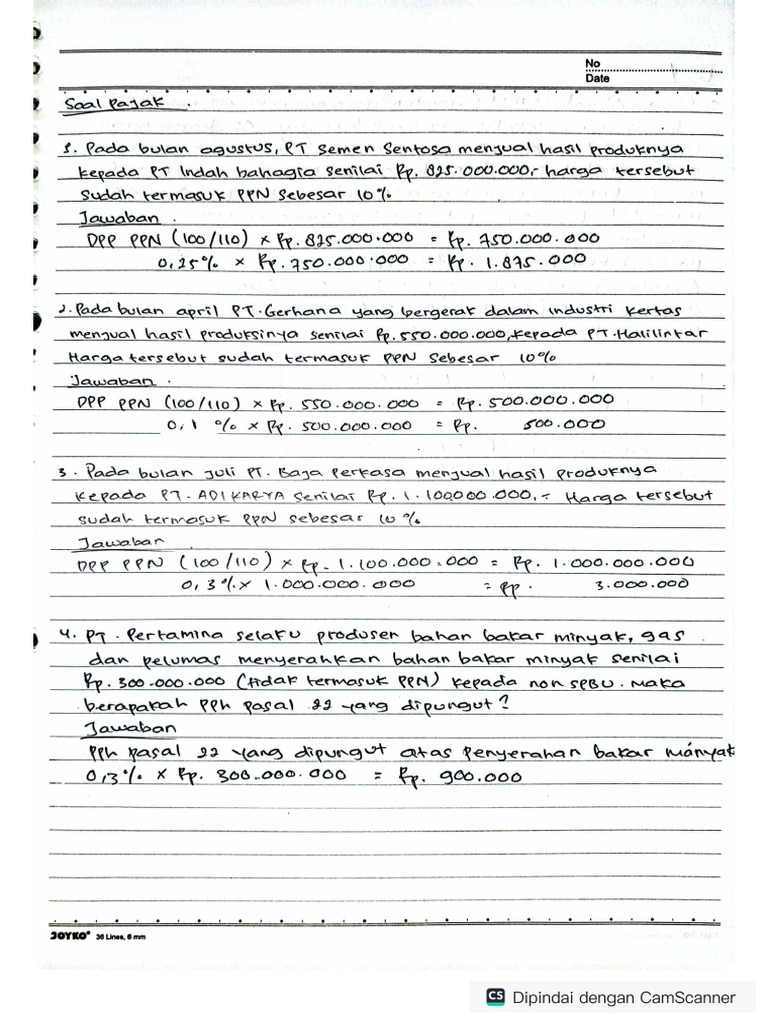 No
Date
Soal Pajak .
1. Pada bulan agustus, PT Semen Sentosa menjual hasil produknya
kepada PT Indah bahagia senilai Rp. 825.000.000,- harga tersebut
sudah termasuk PPN Sebesar 10%
Jawaban .
DPP PPN (100/110) x Rp. 825.000.000 = Rp. 750.000.000
0,25% x Rp. 750.000.000 = Rp. 1.875.000
2. Pada bulan april PT. Gerhana yang bergerak dalam industri kertas
menjual hasil produksinya senilai Rp. 550.000.000, kepada PT. Halilintar
Harga tersebut sudah termasuk PPN Sebesar 10%
Jawaban .
DPP PPN (100/110) x Rp. 550.000.000 = Rp. 500.000.000
0,1 % x Rp. 500.000.000 = Rp. 500.000
3. Pada bulan juli PT. Baja Perkasa menjual hasil produknya
kepada PT. ADIKARYA senilai Rp. 1.100.000.000,- Harga tersebut
sudah termasuk PPN sebesar 10%
Jawaban
DPP PPN (100/110) x Rp. 1.100.000.000 = Rp. 1.000.000.000
0,3% x 1.000.000.000 = Rp. 3.000.000
4. PT. Pertamina selaku produsen bahan bakar minyak, gas
dan pelumas menyerahkan bahan bakar minyak senilai
Rp. 300.000.000 (tidak termasuk PPN) kepada non SPBU. Maka
berapakah PPh pasal 22 yang dipungut?
Jawaban
PPh pasal 22 yang dipungut atas penyerahan bakar minyak
0,3% x Rp. 300.000.000 = Rp. 900.000
JOYKO 36 Lines, 6 mm
CS Dipindai dengan CamScanner